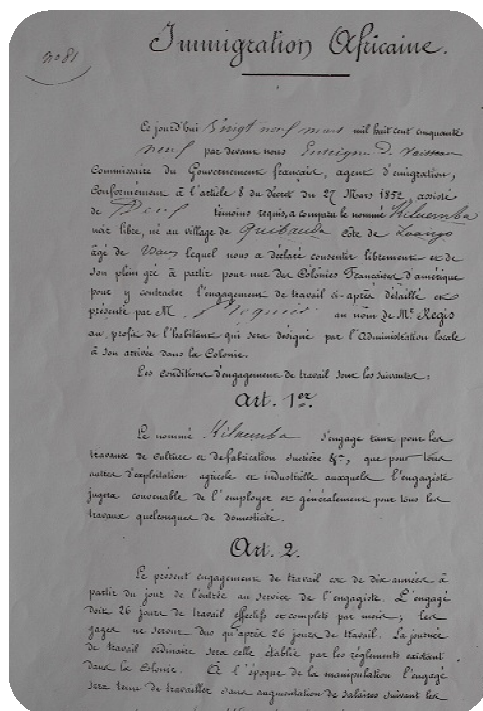 Immigration Africaine.
n° 81
Ce jourd'hui Vingt neuf mars mil huit cent cinquante
neuf par devant nous Enseigne d. Vaisseau
Commissaire du Gouvernement français, agent d'émigration,
Conformément à l'article 8 du décret du 27 Mars 1852, assisté
de Deux témoins requis, a comparu le nommé Kiluemba
noir libre, né au village de Quibanda côte de Loango
âgé de lequel nous a déclaré consentir librement et de
son plein gré à partir pour une des Colonies Françaises d'amérique
pour y contracter l'engagement de travail ci-après détaillé et
présenté par M. au nom de Mr. Régis
au profit de l'habitant qui sera désigné par l'administration locale
à son arrivée dans la Colonie.
Les conditions d'engagement de travail sont les suivantes :
Art. 1er.
Le nommé Kiluemba s'engage tant pour les
travaux de culture et de fabrication sucrière &a, que pour tous
autres d'exploitation agricole et industrielle auxquels l'engagiste
jugera convenable de l'employer et généralement pour tous les
travaux quelconques de domesticité.
Art. 2.
Le présent engagement de travail est de dix années à
partir du jour de l'entrée au service de l'engagiste. L'engagé
doit 26 jours de travail effectifs et complets par mois ; les
gages ne seront dus qu'après 26 jours de travail. La journée
de travail ordinaire sera celle établie par les règlements existant
dans la Colonie. À l'époque de la manipulation l'engagé
sera tenu de travailler sans augmentation de salaires suivant les